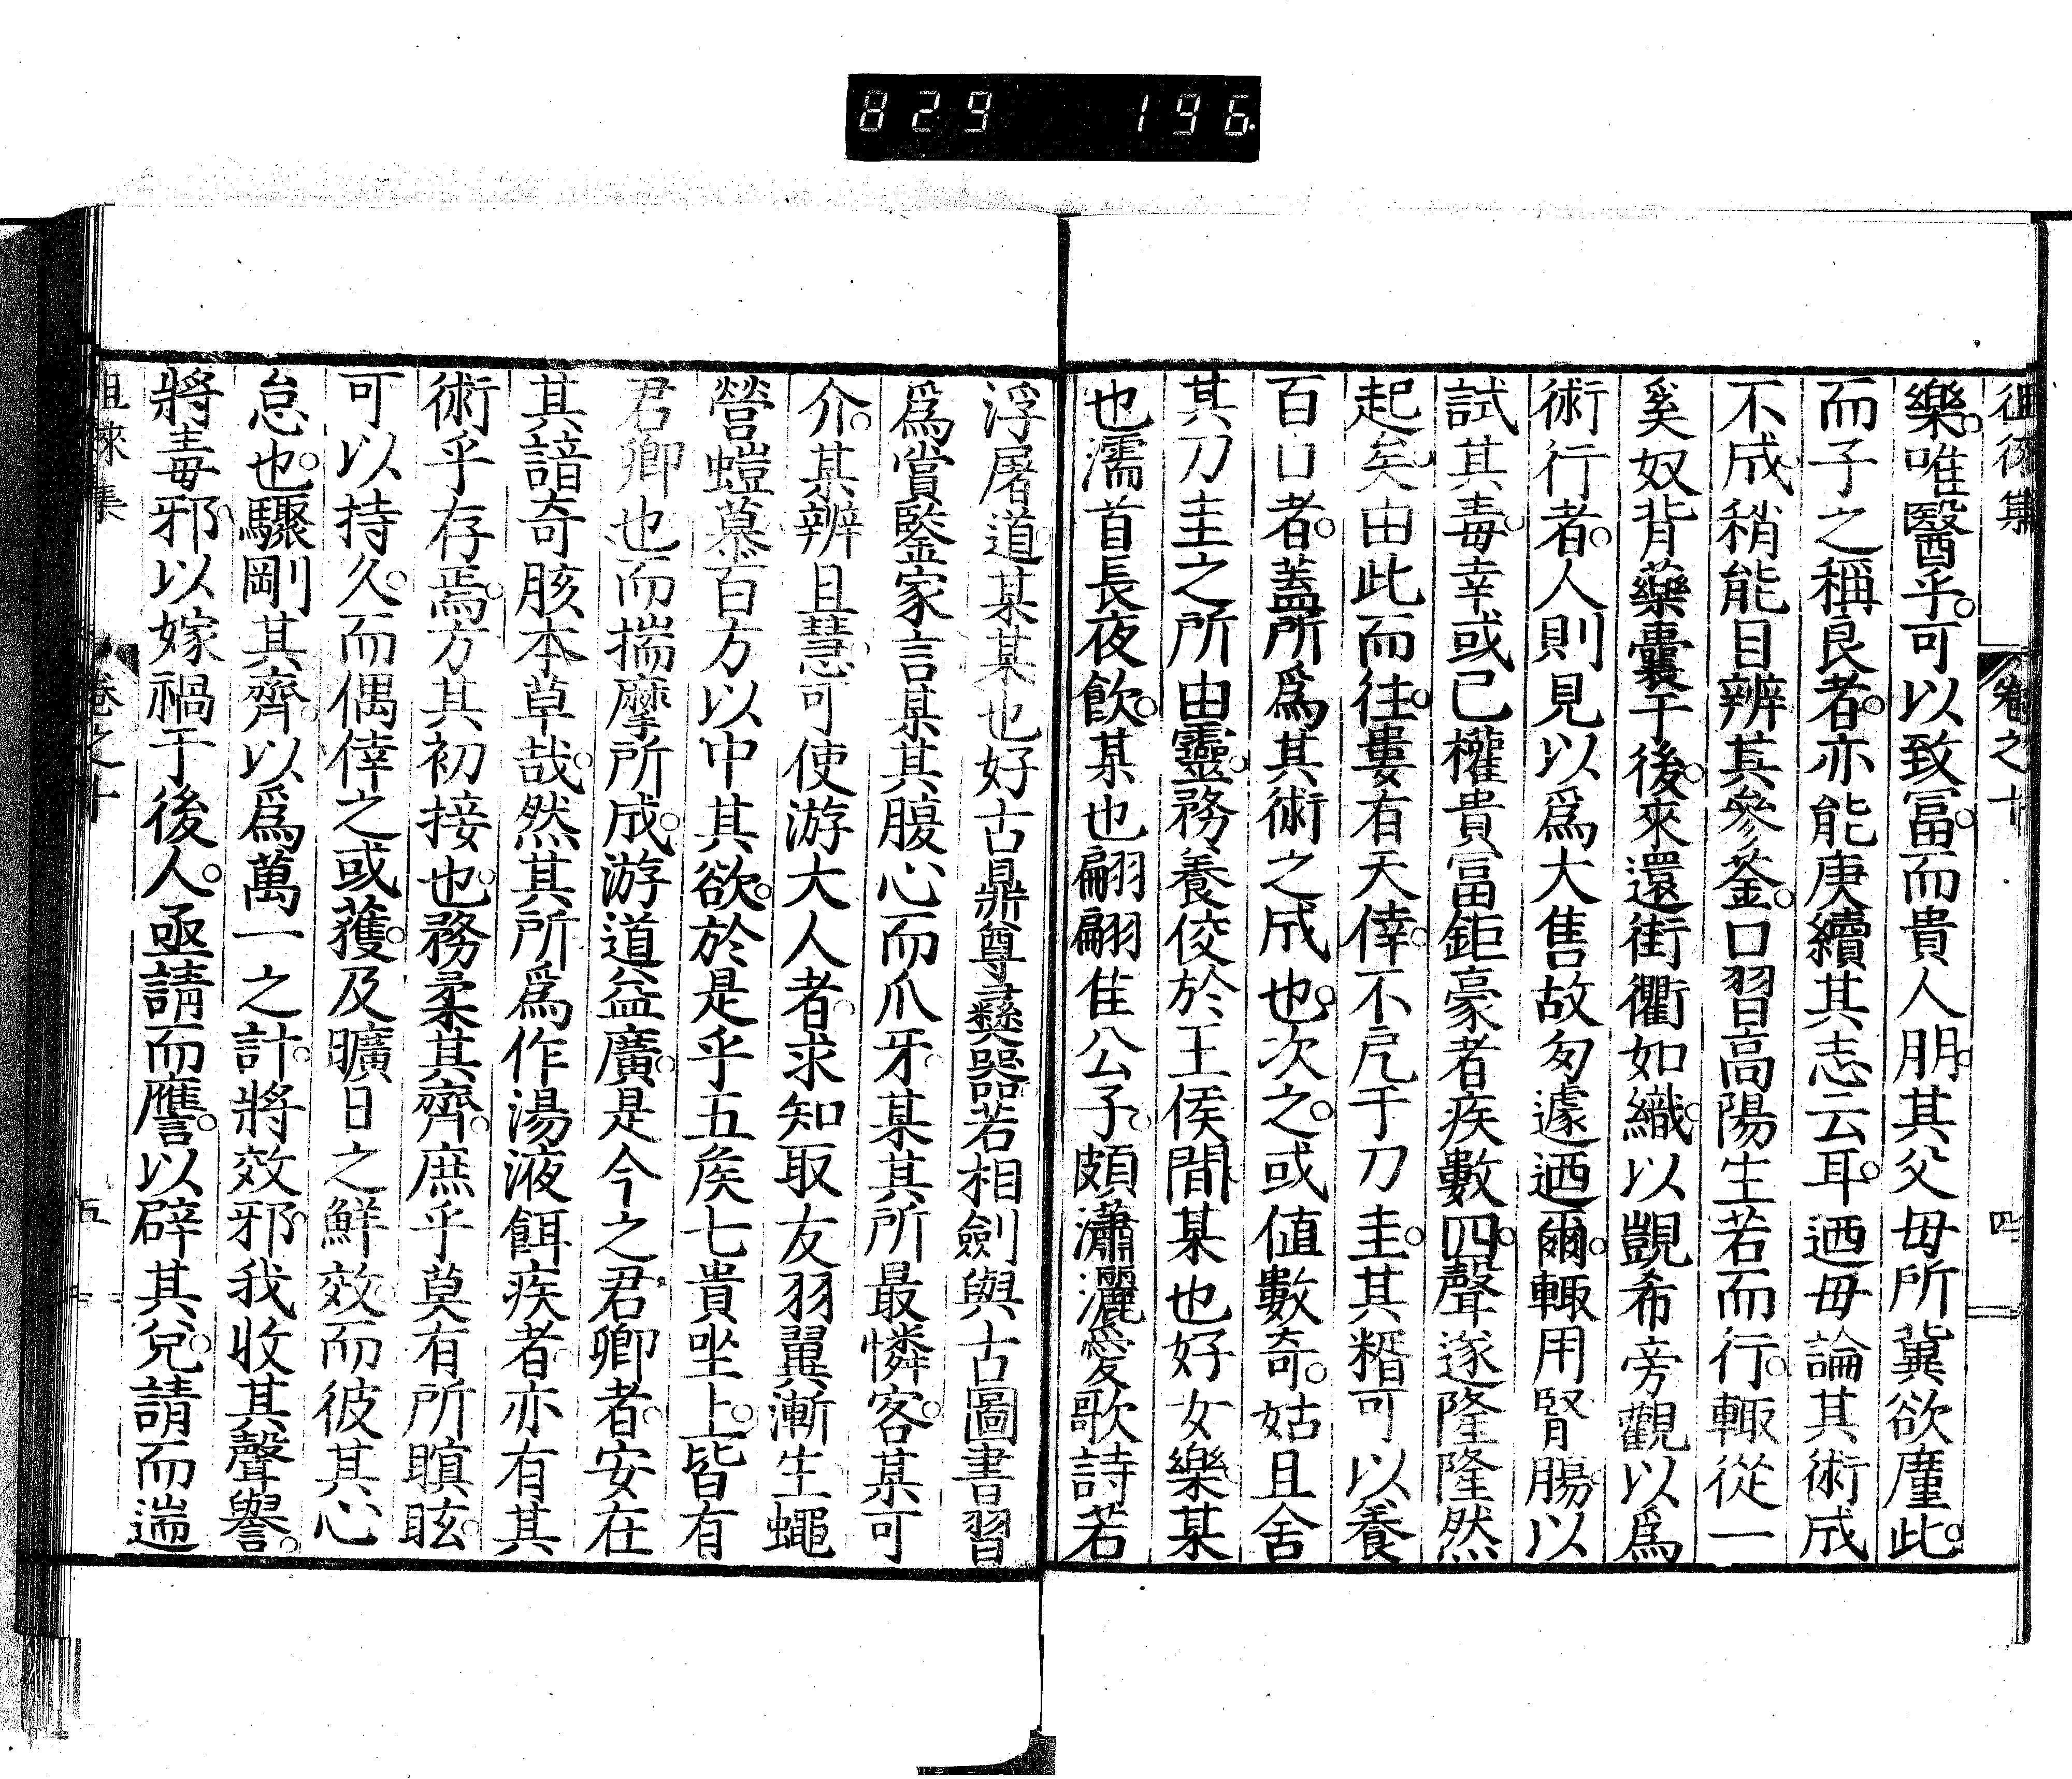 829 196
徂徠集 卷之十 四
樂。唯醫乎。可以致富。而貴人朋。其父毋所冀欲廑此。
而子之稱良者。亦能庚續其志云耳。迺毋論其術成
不成。稍能目辨其參荃。口習高陽生若而行。輙從一
奚奴背藥囊于後。來還街衢如織。以覬希旁觀以爲
術行者。人則見以爲大售故匆遽迺爾。輙用腎腸以
試其毒。幸或已權貴富鉅豪者疾數四。聲遂隆隆然
起矣。由此而往。婁有天倖。不卮于刀圭。其糈可以養
百口者。蓋所爲其術之成也。次之。或値數奇。姑且舍
其刀圭之所由靈。務養佼於王侯間。某也好女樂。某
也濡首長夜飮。某也翩翩佳公子。頗瀟灑愛歌詩若
浮屠道。某某也好古鼎尊彝器若相劍與古圖書習
爲賞鑒家言。某其腹心而爪牙。某其所最憐客。某可
介。某辨且慧。可使游大人者。求知取友。羽翼漸生。蠅
營螘慕。百方以中其欲。於是乎五矦七貴坐上。皆有
君卿也。而揣摩所成。游道益廣。是今之君卿者。安在
其諳奇胲本草哉。然其所爲作湯液餌疾者。亦有其
術乎存焉。方其初接也。務柔其齊。庶乎莫有所瞑眩。
可以持久。而偶倖之或獲。及曠日之鮮效。而彼其心
怠也。驟剛其齊。以爲萬一之計。將效邪。我收其聲譽。
將毒邪。以嫁禍于後人。亟請而譍。以辟其兌。請而遄
徂徠集 卷之十 五